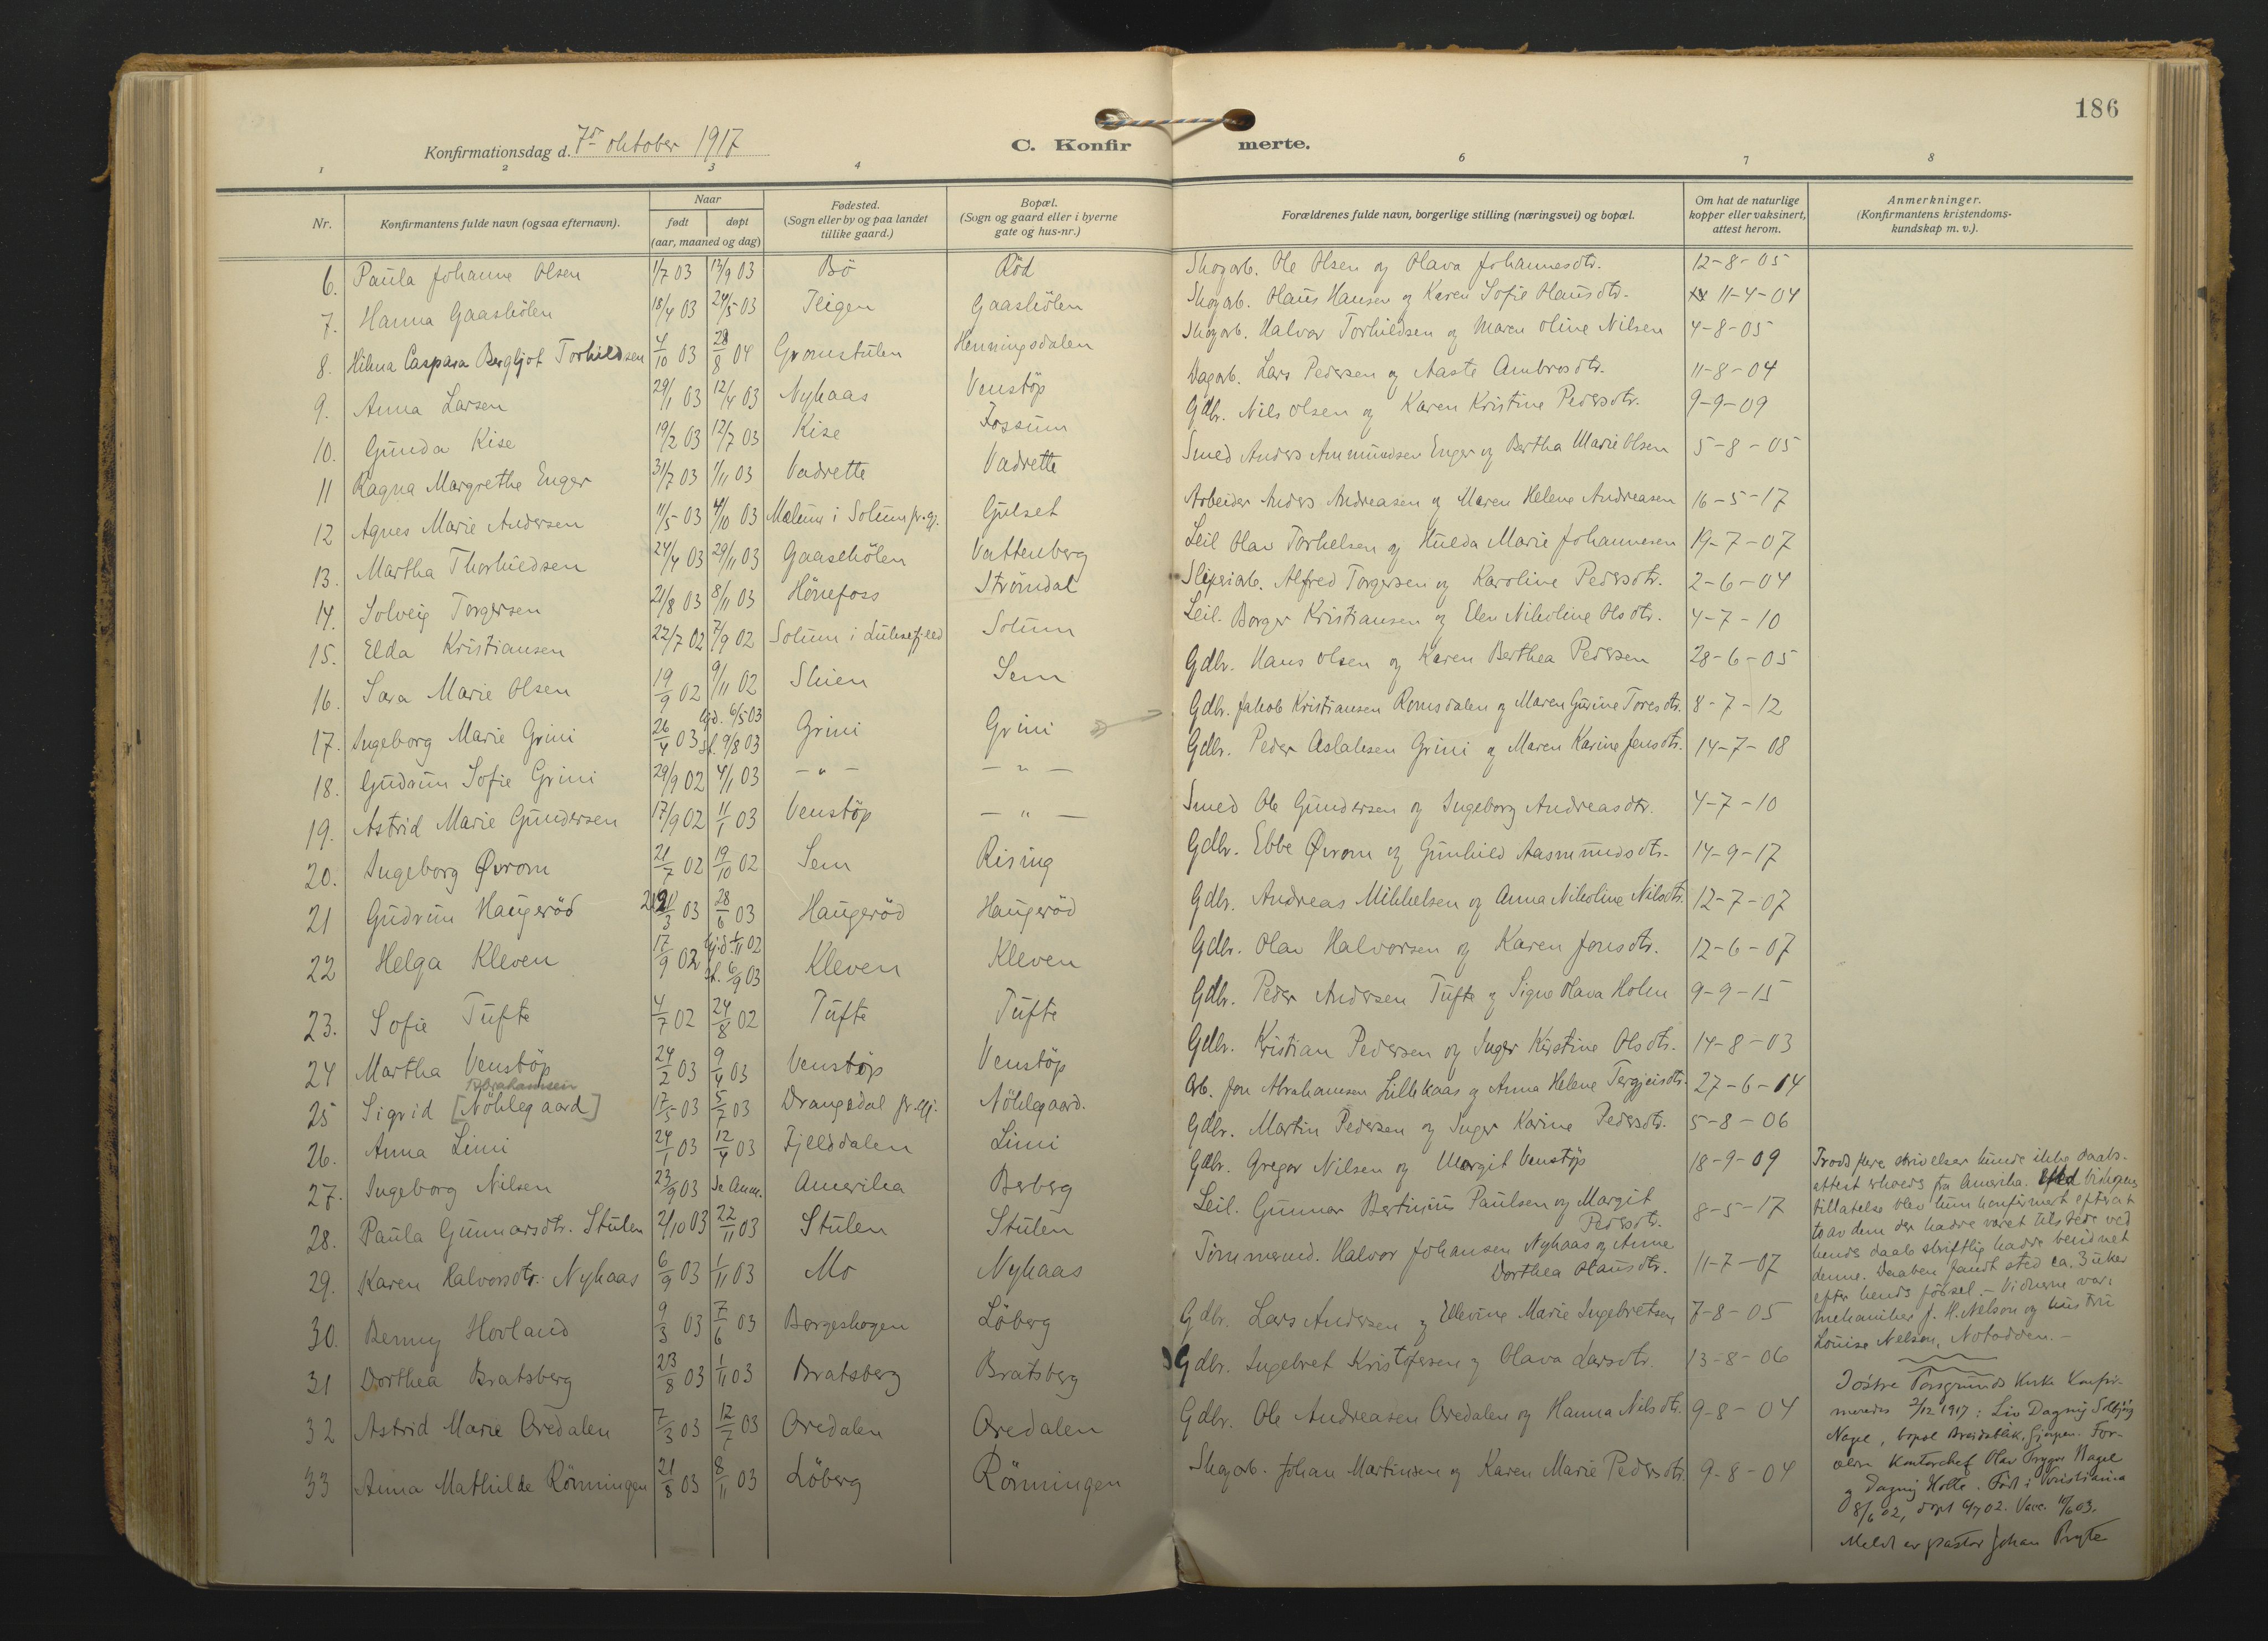 186
Konfirmationsdag d. 7de oktober 1917
C. Konfirmerte.
1 2 3 4 6 7 8
Nr. Konfirmantens fulde navn (ogsaa efternavn). Naar født døpt (aar, maaned og dag) Fødested. (Sogn eller by og paa landet tillike gaard.) Bopæl. (Sogn og gaard eller i byerne gate og hus-nr.) Forældrenes fulde navn, borgerlige stilling (næringsvei) og bopæl. Om hat de naturlige kopper eller vaksinert, attest herom. Anmerkninger. (Konfirmantens kristendoms-kundskap m. v.).
6. Paula Johanne Olsen 1/7 03 13/9 03 Bö Röd Skogarb. Ole Olsen og Olava Johannesdtr. 12-8-05
7. Hanna Gaashölen 18/4 03 24/5 03 Teigen Gaashölen Skogarb. Olaus Hansen og Karen Sofie Olausdtr. 11-4-04
8. Hilma Caspara Bergljot Torkildsen 4/10 03 28/8 04 Gromstulen Henningsdalen Skogarb. Halvor Torkildsen og Maren Oline Nilsen 4-8-05
9. Anna Larsen 29/1 03 12/4 03 Nyhaas Venstöp Dagarb. Lars Pedersen og Aaste Ambrosdtr. 11-8-04
10. Gunda Kise 19/2 03 12/7 03 Kise Fossum Gdbr. Nils Olsen og Karen Kristine Pedersdtr. 9-9-09
11 Ragna Margrethe Enger 31/7 03 1/11 03 Vadrette Vadrette Smed Anders Ammundsen Enger og Bertha Marie Olsen 5-8-05
12 Agnes Marie Andersen 11/5 03 4/10 03 Mælum i Solum pr.gj. Gulset Arbeider Anders Andreasen og Maren Helene Andreasen 16-5-17
13. Martha Thorkildsen 24/4 03 29/11 03 Gaasehölen Vattenberg Leil Olav Torkelsen og Hulda Marie Johannesen 19-7-07
14. Solveig Torgersen 21/8 03 8/11 03 Hönefoss Strömdal Sliperiarb. Alfred Torgersen og Karoline Pedersdtr. 2-6-04
15. Elda Kristiansen 22/7 02 7/9 02 Solum i Luksefjeld Solum Leil. Borger Kristiansen og Elen Nikoline Olsdtr. 4-7-10
16. Sara Marie Olsen 19/9 02 9/11 02 Skien Sem Gdbr. Hans Olsen og Karen Berthea Pedersen 28-6-05
17. Ingeborg Marie Grini 26/4 03 hjd. 6/5 03 st. 9/8 03 Grini Grini Gdbr. Jakob Kristiansen Romsdalen og Maren Gurine Toresdtr. 8-7-12
18. Gudrun Sofie Grini 29/9 02 4/1 03 - " - - " - Gdbr. Peder Aslaksen Grini og Maren Karine Jensdtr. 14-7-08
19. Astrid Marie Gundersen 17/9 02 11/1 03 Venstöp - " - Smed Ole Gundersen og Ingeborg Andreasdtr. 4-7-10
20. Ingeborg Øvrom 21/7 02 19/10 02 Sem Rising Gdbr. Ebbe Øvrom og Gunhild Aasmundsdtr. 14-9-17
21 Gudrun Haugeröd 21/3 03 28/6 03 Haugeröd Haugeröd Gdbr. Andreas Mikkelsen og Anna Nikoline Nilsdtr. 12-7-07
22 Helga Kleven 17/9 02 hj.d 1/11 02 st. 6/9 03 Kleven Kleven Gdbr. Olav Halvorsen og Karen Jonsdtr. 12-6-07
23. Sofie Tufte 4/7 02 24/8 02 Tufte Tufte Gdbr. Peder Andersen Tufte og Signe Olava Holm 9-9-15
24 Martha Venstöp 24/2 03 9/4 03 Venstöp Venstöp Gdbr. Kristian Pedersen og Inger Kirstine Olsdtr. 14-8-03
Abrahamsen
25 Sigrid [Nöklegaard] 17/5 03 5/7 03 Drangedal pr.gj. Nöklegaard. Arb. Jon Abrahamsen Lillekaas og Anna Helene Tergjeisdtr. 27-6-14
26. Anna Limi 24/1 03 12/4 03 Fjelldalen Limi Gdbr. Martin Pedersen og Inger Karine Pedersdtr. 5-8-06
27. Ingeborg Nilsen 23/9 03 Se Anm. Amerika Berberg Gdbr. Gregor Nilsen og Margit Venstöp 18-9-09
28. Paula Gunnarsdtr. Stulen 2/10 03 22/11 03 Stulen Stulen Leil. Gunnar Bertinius Paulsen og Margit Pedersdtr. 8-5-17
29. Karen Halvorsdtr. Nyhaas 6/9 03 1/11 03 Mo Nyhaas Tömmermd. Halvor Johansen Nyhaas og Anne Dorthea Olausdtr. 11-7-07
30. Benny Hovland 9/3 03 7/6 03 Borgeskogen Löberg Gdbr. Lars Andersen og Ellevine Marie Ingebretsen 7-8-05
31 Dorthea Bratsberg 23/8 03 1/11 03 Bratsberg Bratsberg Gdbr. Ingebret Kristofersen og Olava Larsdtr. 13-8-06
32 Astrid Marie Oredalen 7/3 03 12/7 03 Oredalen Oredalen Gdbr. Ole Andreasen Oredalen og Hanna Nilsdtr. 9-8-04
33 Anna Mathilde Rönningen 21/8 03 8/11 03 Löberg Rönningen Skogarb. Johan Martinsen og Karen Marie Pedersdtr. 9-8-04
Trods flere skrivelser kunde ikke daabs-
attest erhverdes fra Amerika. Med biskopens
tillatelse blev hun konfirmert efterat
to av dem der hadde været tilstede ved
hendes daab skriftlig hadde bevidnet
denne. Daaben fandt sted ca. 3 uker
efter hendes födsel. - Vidnerne var:
mekaniker J. H. Nelson og hustru
Louise Nelson, Notodden. -
I östre Porsgrunds Kirke konfir-
meredes 2/12 1917: Liv Dagny Solbjörg
Nagel, bopæl Breidablik, Gjerpen. For-
ældre Kontorchef Olav Trygve Nagel
og Dagny Holte. Född i Kristiania
8/6 02, döpt 6/7 02. Vacc. 10/6 03.
Meldt av pastor Johan Brygte